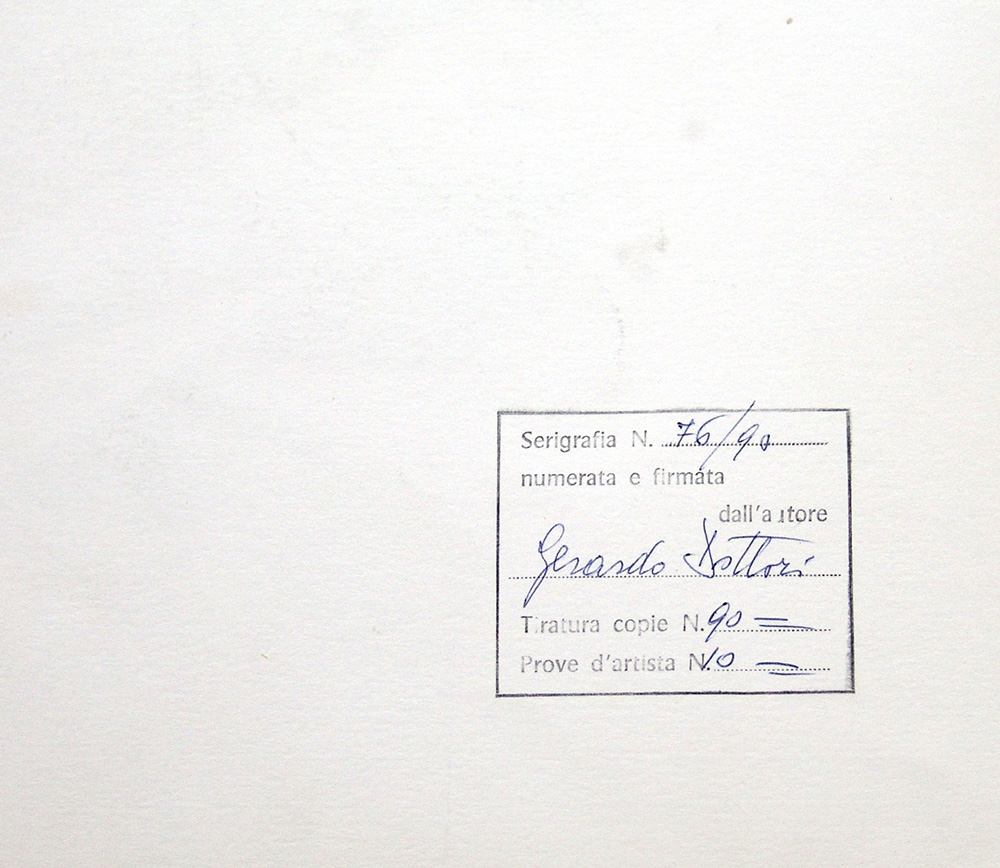 Serigrafia N. 76/90
numerata e firmata
dall'autore
Gerardo Dottori
Tiratura copie N. 90 =
Prove d'artista N. 10 =